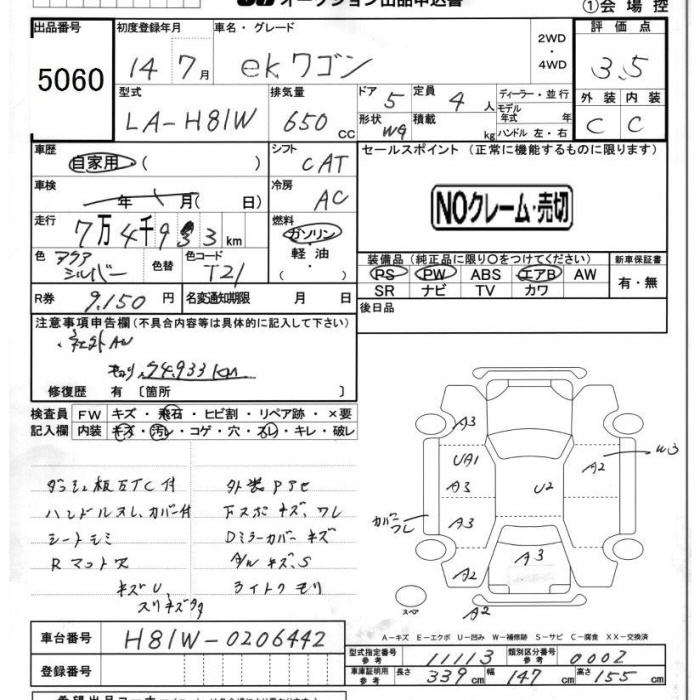 オークション出品申込書
①会場控
出品番号 初度登録年月 車名・グレード 2WD・4WD 評価点
5060 14年7月 ekワゴン 3.5
型式 排気量 ドア 5 定員 4人 ディーラー・並行
LA-H81W 650cc 形状 WG 積載 kg モデル年式 年 ハンドル 左・右
外装 内装
C C
車歴 自家用 ( ) シフト CAT
セールスポイント (正常に機能するものに限ります)
車検 年 月(日) 冷房 AC
NOクレーム・売切
走行 7万4千933km 燃料 ガソリン・軽油・( )
色 アクアシルバー 色替 色コード T21
装備品 (純正品に限り○をつけてください) 新車保証書
PS PW ABS エアB AW 有・無
SR ナビ TV カワ
R券 9,150円 名変通知期限 月 日
後日品
注意事項申告欄 (不具合内容等は具体的に記入して下さい)
社外AW
74.933km
修復歴 有 〔箇所 〕
検査員 FW キズ・飛石・ヒビ割・リペア跡・×要
記入欄 内装 キズ・汚レ・コゲ・穴・スレ・キレ・破レ
ダッシュ板 ETC付 外装
ハンドルスレ、カバー付 下スポキズ、ワレ
シートシミ Dミラーカバーキズ
Rマット欠 AWキズ、S
キズU、 ライトクモリ
スリキズ
A3
UA1
A3
A3
A2
カバーワレ
U2
A3
A2
W3
A2
スペア
A-キズ E-エクボ U-凹み W-補修跡 S-サビ C-腐食 XX-交換済
車台番号 H81W-0206442
型式指定番号 参考 11113 類別区分番号 参考 0002
登録番号
車庫証明用 参考 長さ 339cm 幅 147cm 高さ 155cm